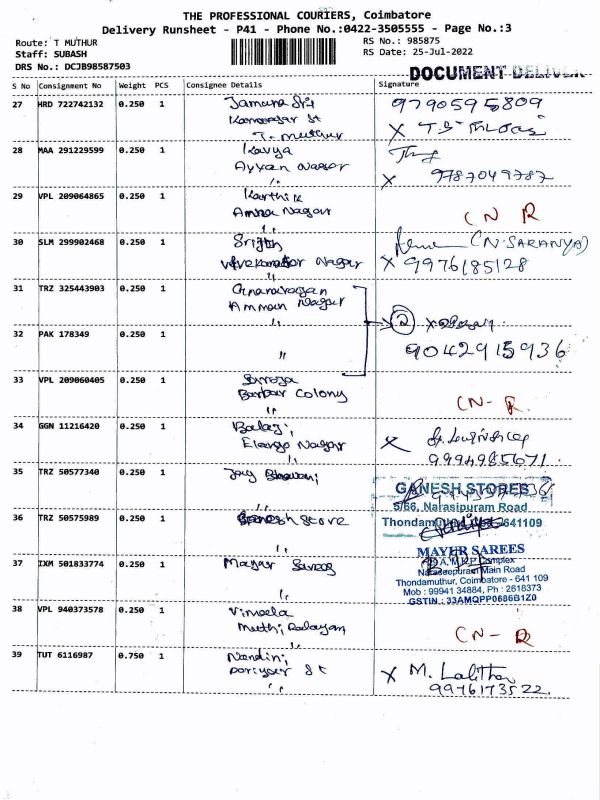 THE PROFESSIONAL COURIERS, Coimbatore
Delivery Runsheet - P41 - Phone No.:0422-3505555 - Page No.:3
Route: T MUTHUR
RS No.: 985875
Staff: SUBASH
RS Date: 25-Jul-2022
DRS No.: DCJB98587503
DOCUMENT DELIVER
S No Consignment No Weight PCS Consignee Details Signature
27 HRD 722742132 0.250 1 Jamuna Sri 9790595809
St
T. Muthur
28 MAA 291229599 0.250 1 Kavya
Ayyan Nagar 9787049787
29 VPL 209064865 0.250 1 Karthik
Amma Nagar CN R
30 SLM 299902468 0.250 1 (N. SARANYA)
Nagar X 9976185128
31 TRZ 325443903 0.250 1
Amman Nagar
2
32 PAK 178349 0.250 1 9042915936
"
33 VPL 209060405 0.250 1 Saroja
Colony CN-R
34 GGN 11216420 0.250 1 Balaji
Nagar X
35 TRZ 50577340 0.250 1
GANESH STORES
5/66, Narasipuram Road
36 TRZ 50575989 0.250 1 Ganesh Store
641109
37 IXM 501833774 0.250 1
MAYUR SAREES
Complex
Main Road
Thondamuthur, Coimbatore - 641 109
Mob : 99941 34884, Ph : 2618373
GSTIN : 33AMQPP0686B1Z0
38 VPL 940373578 0.250 1 Vimala
CN-R
39 TUT 6116987 0.750 1 Nandini
St X M. Lalitha
9976173522